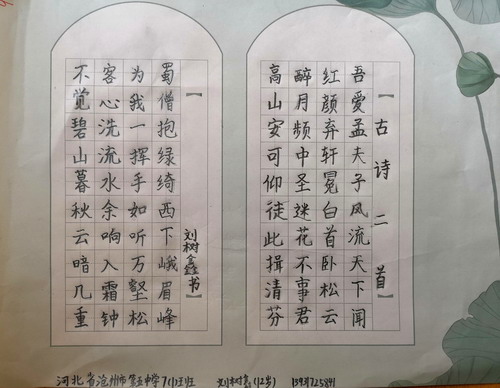 【古诗二首】
吾爱孟夫子风流天下闻
红颜弃轩冕白首卧松云
醉月频中圣迷花不事君
高山安可仰徒此揖清芬
【刘树鑫书】
蜀僧抱绿绮西下峨眉峰
为我一挥手如听万壑松
客心洗流水余响入霜钟
不觉碧山暮秋云暗几重
河北省沧州市第五中学 刘树鑫(12岁)